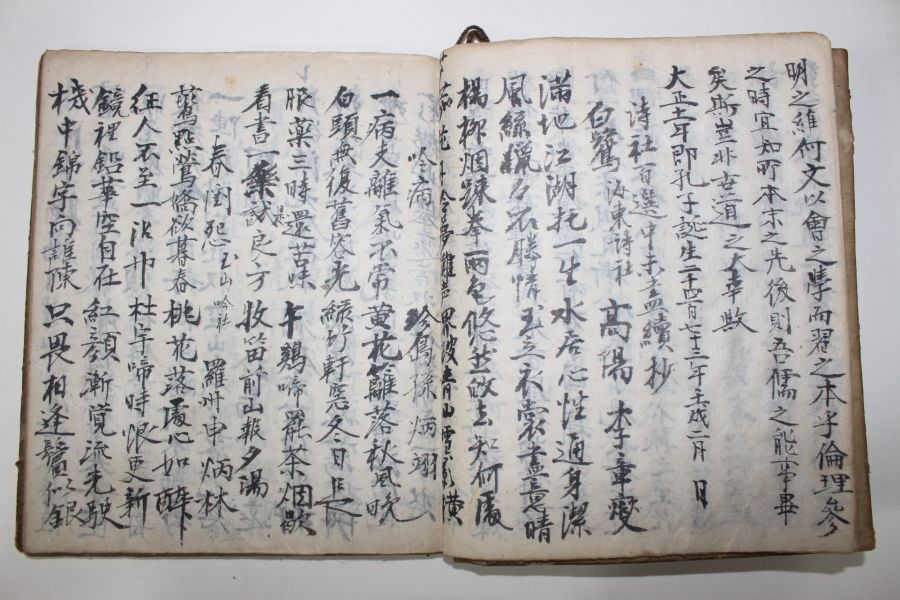 明之維何文以會之學而習之本乎倫理參
之時宜知所本末之先後則吾儒之能事畢
矣斯豈非吾道之大幸歟
大正十一年即孔子誕生二千四百七十三年壬戌二月 日
詩社百選中未盡續抄
白鷺 海東詩社 高陽 李章燮
滿地江湖托一生水居心性通身潔
風絲獵名不勝情玉立衣裳盡意晴
楊柳烟踈拳雨色悠然飛去知何處
花 夢 界破青山雪影橫
吟病 珍島 孫炳翊
一病支離氣不常黃花籬落秋風晚
白頭無復舊容光綠竹軒窓冬日長
服藥三時還苦味午鷄啼罷茶烟歇
看書一業是試良方牧笛前山報夕湯
春閨怨 玉山吟社 羅州 申炳林
鶯點鶯條欲暮春桃花落處心如醉
征人不至一沾巾杜宇啼時恨更新
鏡裡鉛華空自在紅顏漸覚流光駛
機中錦字向誰陳只畏相逢鬢似銀